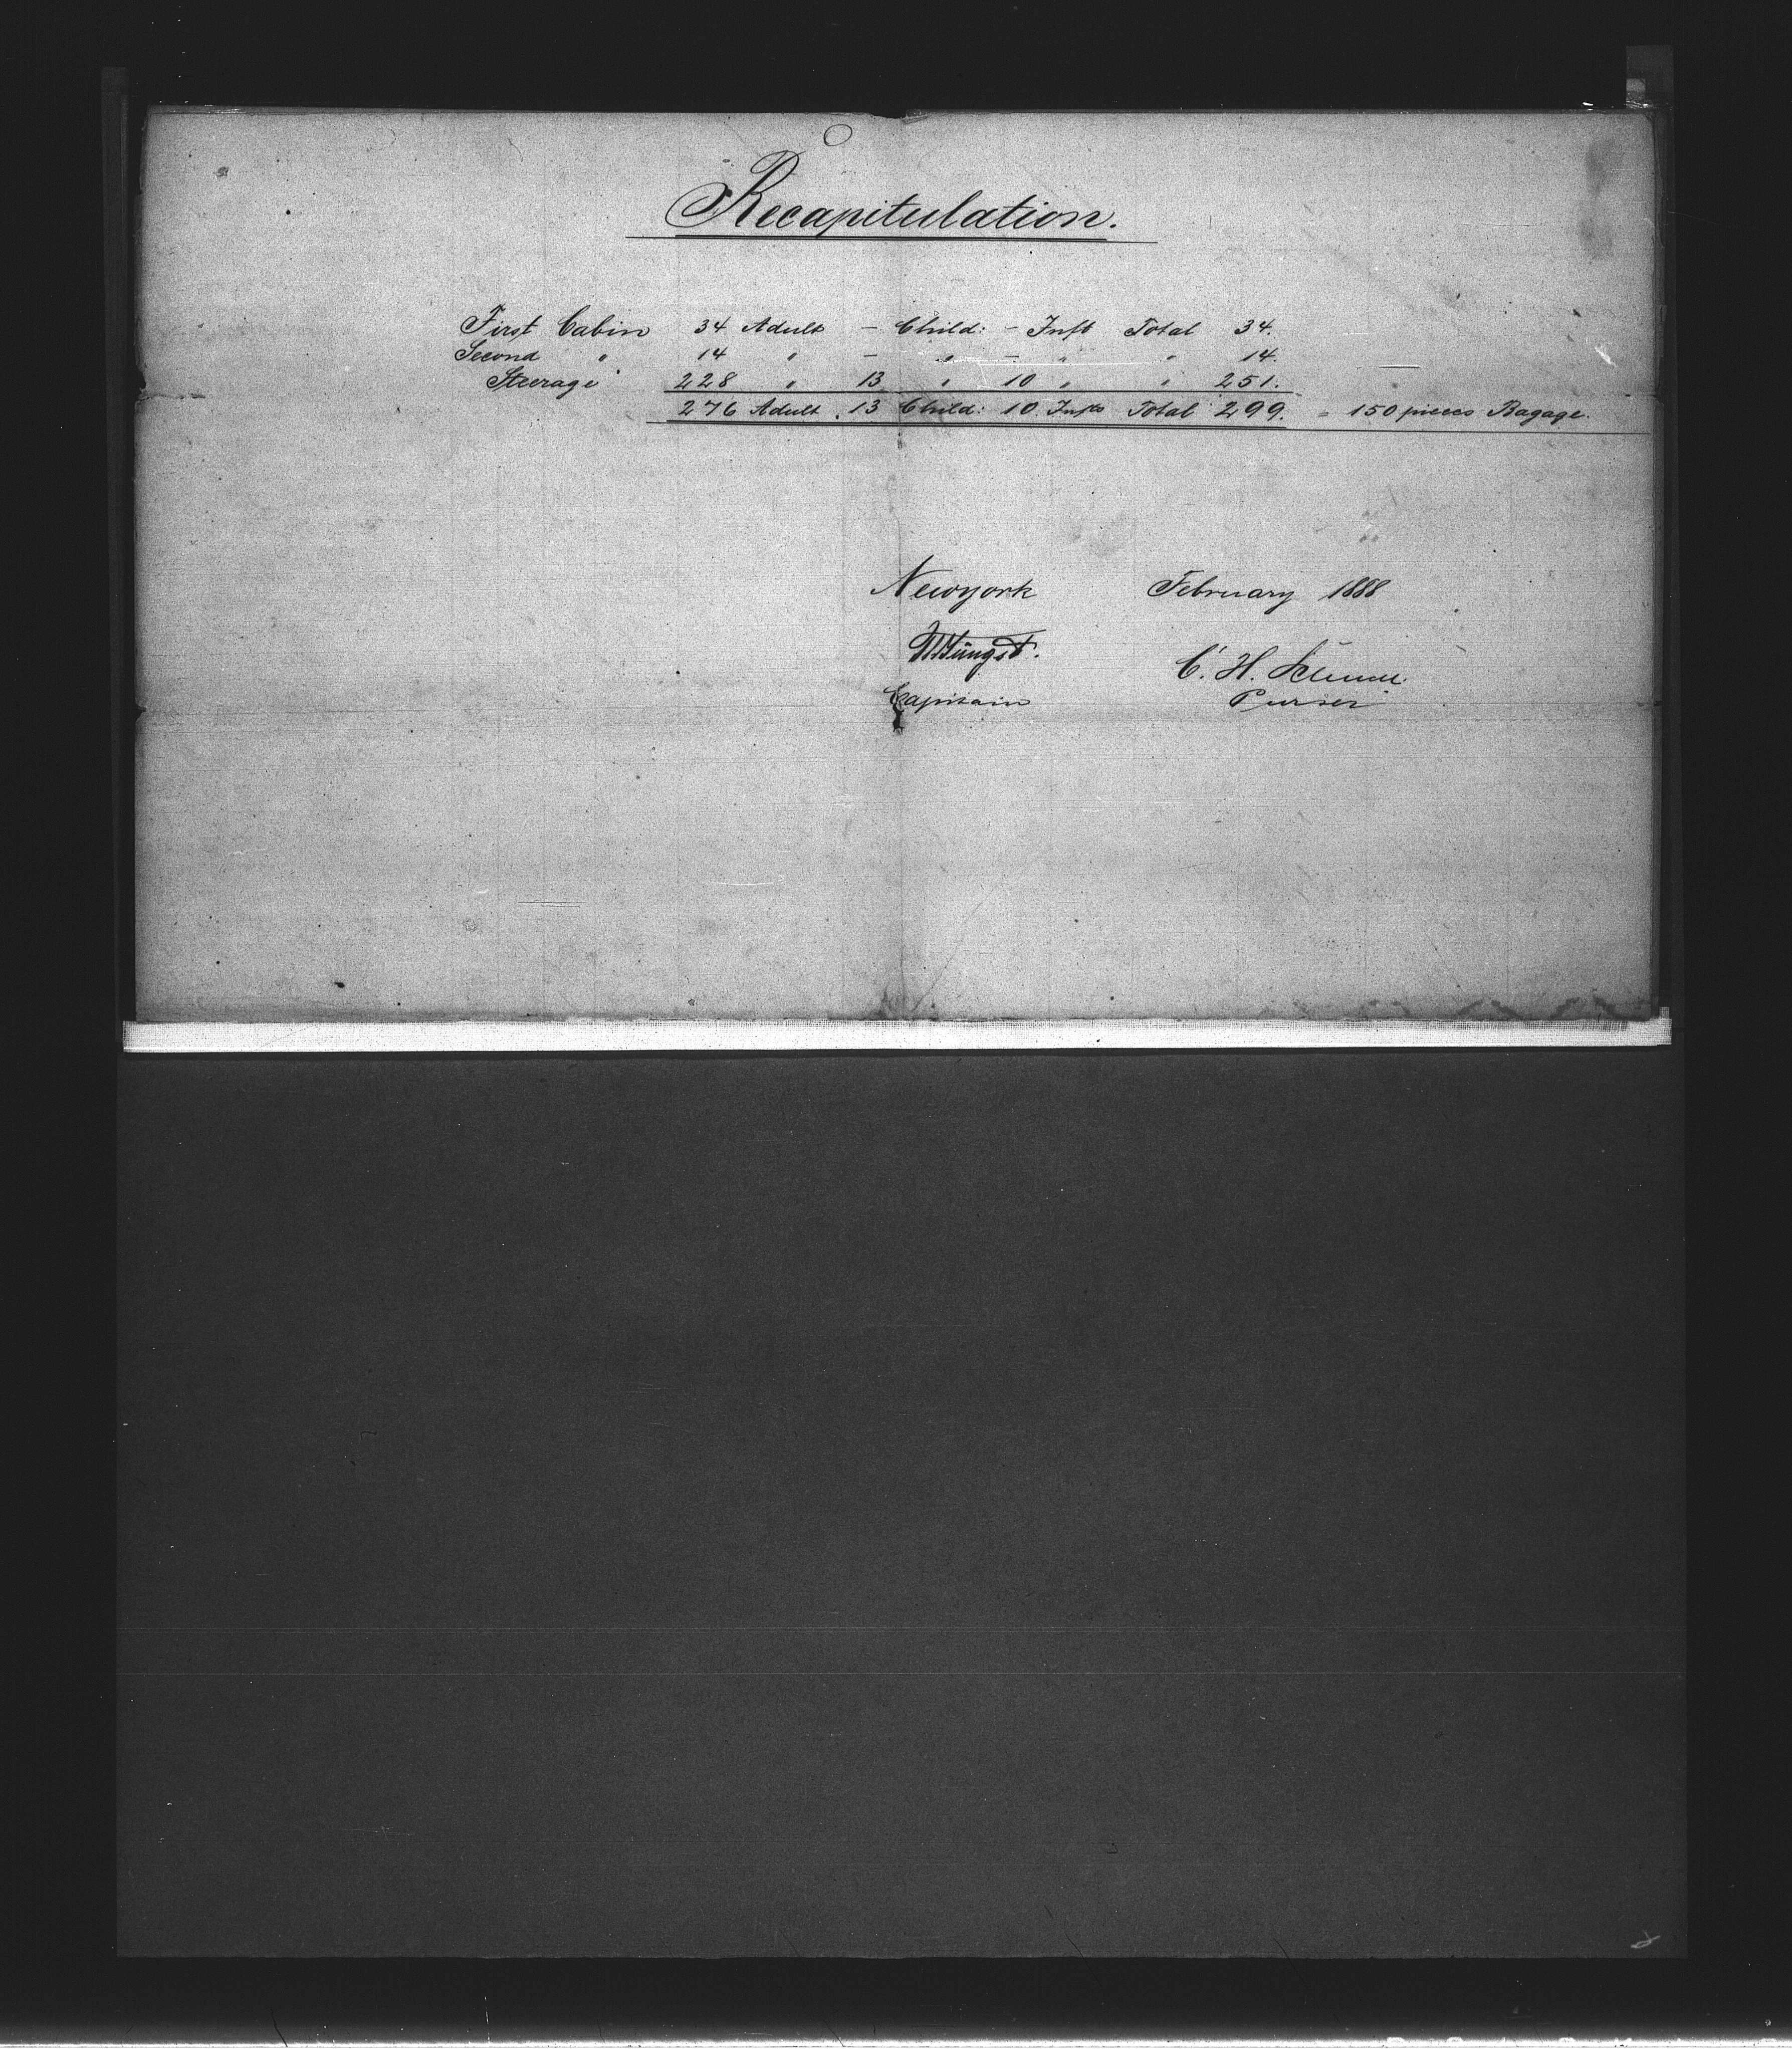 Recapitulation.
First Cabin 34 Adult – Child: – Inft Total 34.
Second " 14 " – " – " " 14.
Steerage 228 " 13 " 10 " " 251.
276 Adult. 13 Child: 10. Infts Total 299. = 150 pieces Bagage.
Newyork February 1888
Jüngst.
C. H.
Capitain Purser